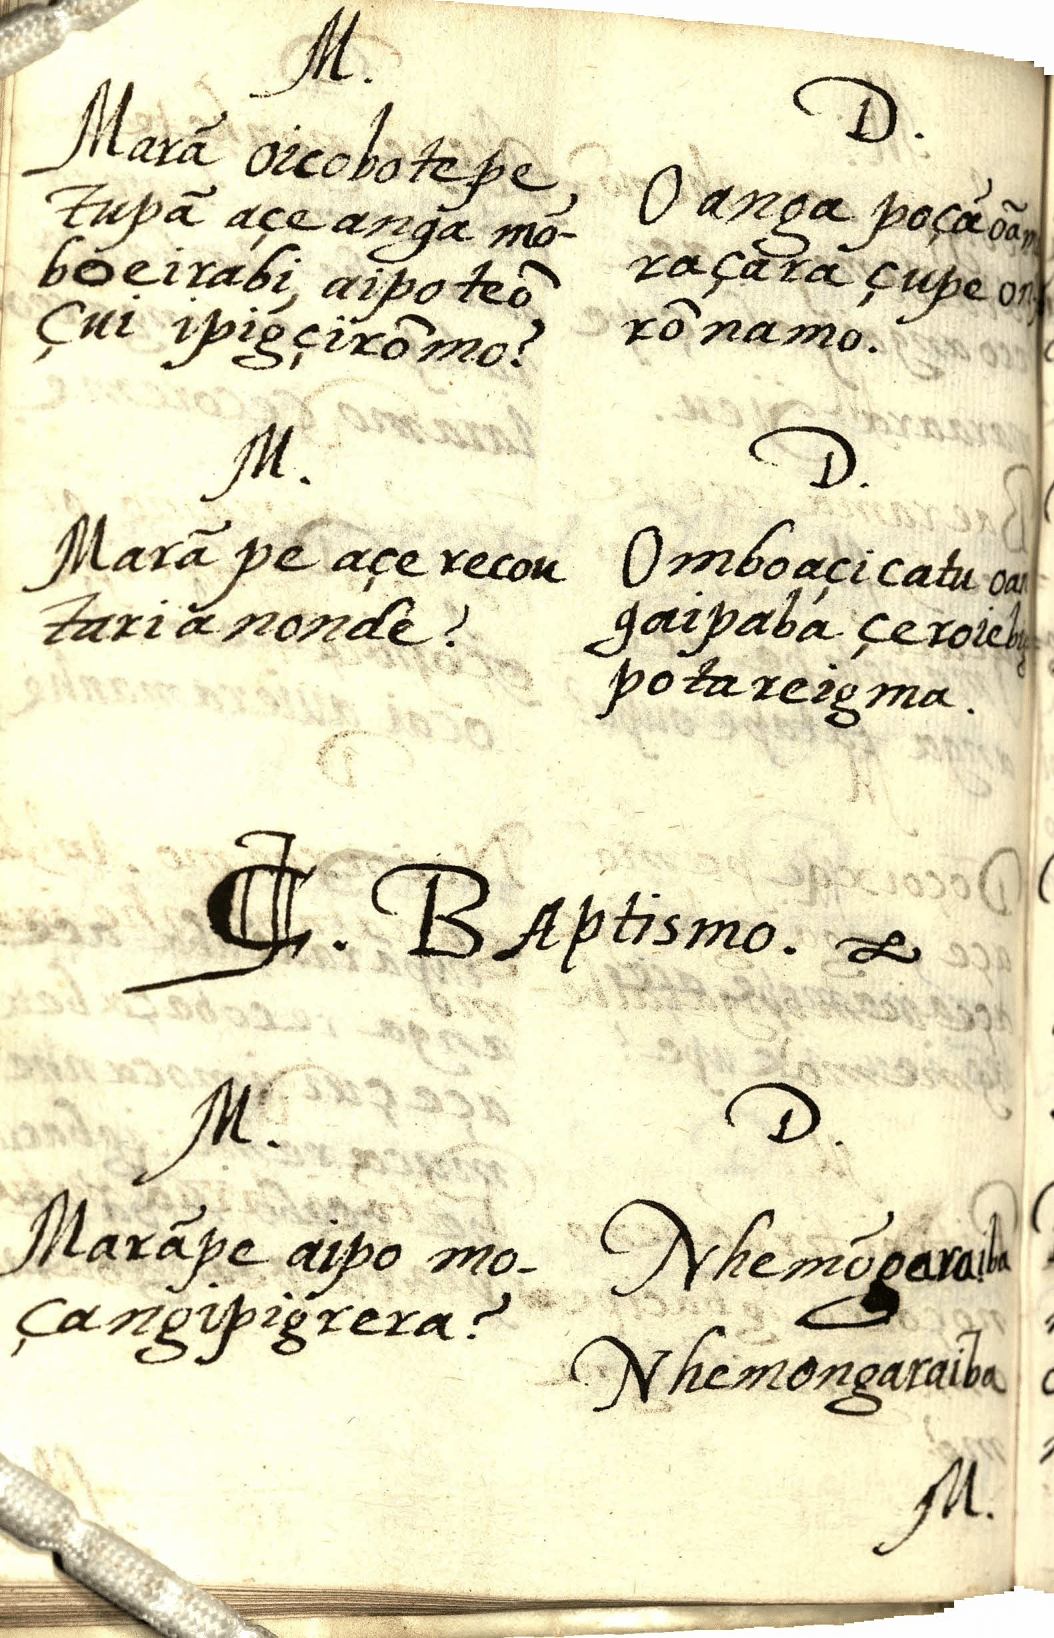 M.
Marã oicobotepe
tupã açe anga mõ-
boeirabi, aipo teõ
çui ipigçirõmo?
D.
O anga poçã
raçara çupe
rõ namo.
M.
Marã pe açe recou
turi a nondé?
D.
Omboaçi catu
gaipaba çeroiebig
potareigma.
C. Baptismo.
M.
Marãpe aipo mo-
çangipigrera?
D.
Nhemõgaraiba
Nhemongaraiba
M.